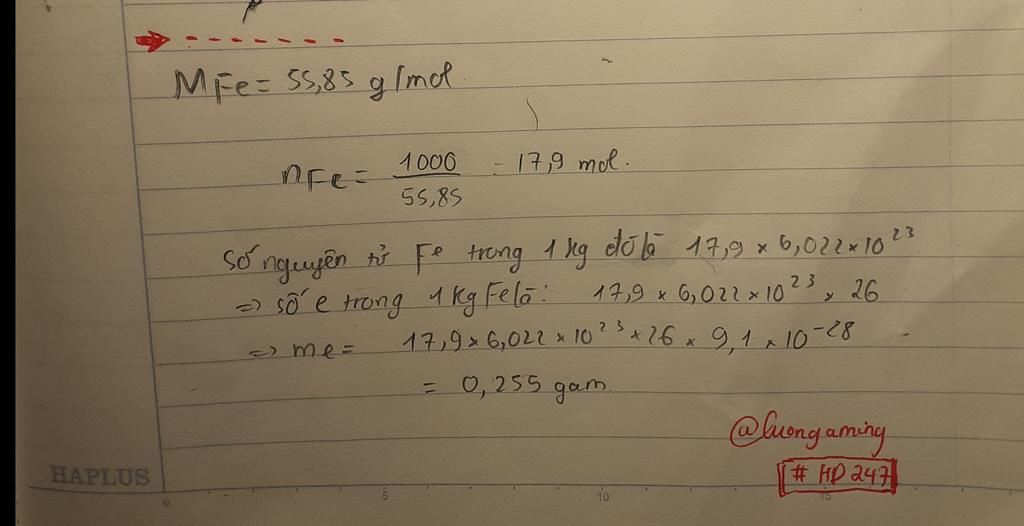 M Fe = 55,85 g/mol
n Fe = 1000 / 55,85 = 17,9 mol.
Số nguyên tử Fe trong 1 kg đó là 17,9 × 6,022 × 10²³
=> số e trong 1 kg Fe là: 17,9 × 6,022 × 10²³ × 26
=> me = 17,9 × 6,022 × 10²³ × 26 × 9,1 × 10⁻²⁸
= 0,255 gam
@luongaming
# HD 247
HAPLUS
0 5 10 15